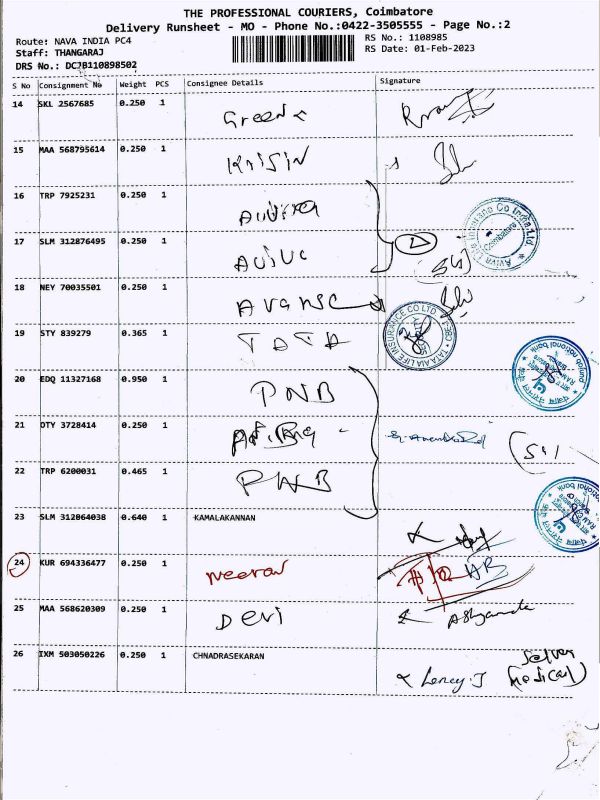 THE PROFESSIONAL COURIERS, Coimbatore
Delivery Runsheet - MO - Phone No.:0422-3505555 - Page No.:2
Route: NAVA INDIA PC4
RS No.: 1108985
Staff: THANGARAJ
RS Date: 01-Feb-2023
DRS No.: DCJB110898502
S No Consignment No Weight PCS Consignee Details Signature
14 SKL 2567685 0.250 1 Green
15 MAA 568795614 0.250 1 Krisin
16 TRP 7925231 0.250 1
17 SLM 312876495 0.250 1 Aviva
18 NEY 70035501 0.250 1
19 STY 839279 0.365 1 TATA
20 EDQ 11327168 0.950 1 PNB
21 OTY 3728414 0.250 1
22 TRP 6200031 0.465 1 PNB
23 SLM 312864038 0.640 1 KAMALAKANNAN
24 KUR 694336477 0.250 1 Neeraw
25 MAA 568620309 0.250 1 Devi
26 IXM 503050226 0.250 1 CHNADRASEKARAN
Lency.J (Medical)
Aviva Life Insurance Co India Ltd.
Coimbatore
TATA AIA LIFE INSURANCE CO LTD
punjab national bank